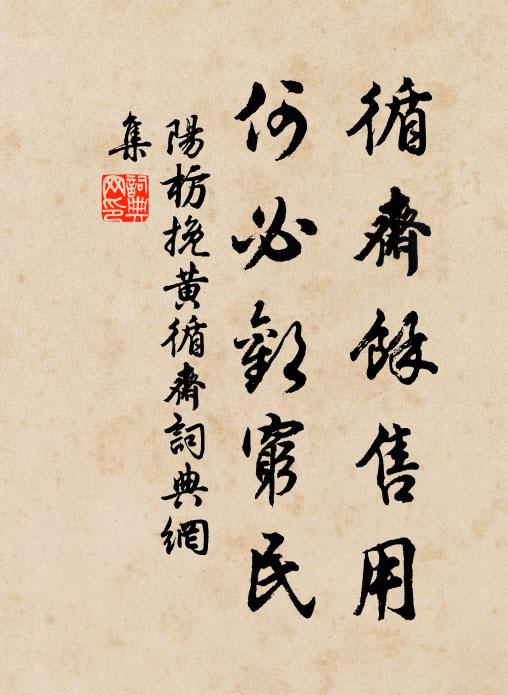 循齋餘售用
何必歎窮民
陽枋挽黃循齋詞典網
集
詞典
网印